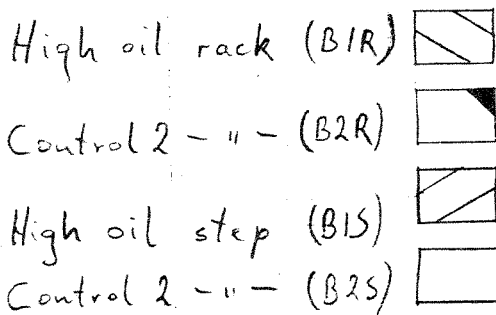 High oil rack (B1R)
Control 2 - " - (B2R)
High oil step (B1S)
Control 2 - " - (B2S)